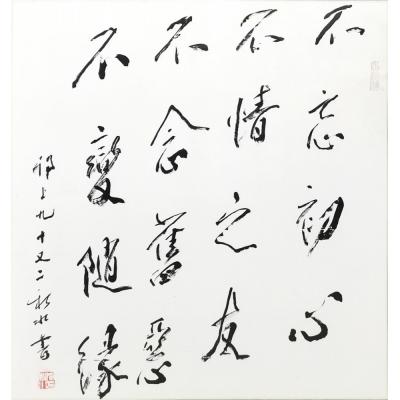 不忘初心
不情之友
不念舊惡
不變隨緣
九十又二 書